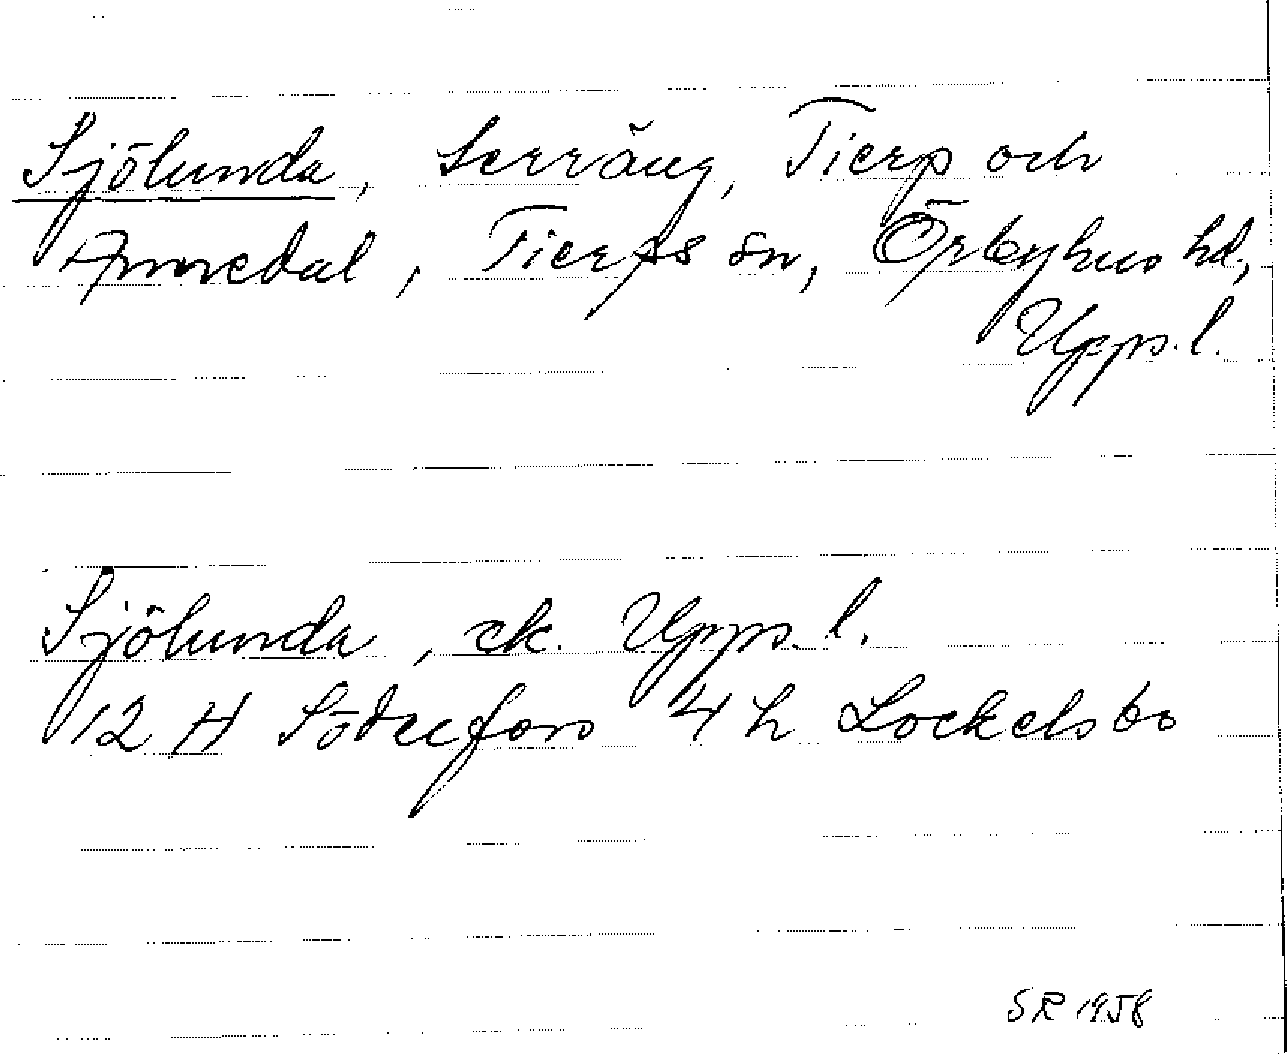 Sjölunda, terräng, Tierp och
Annedal, Tierps sn, Örbyhus hd,
Upps. l.
Sjölunda, ek. Upps. l.
12 H Söderfors 4 h Lockelsbo
SR 1958